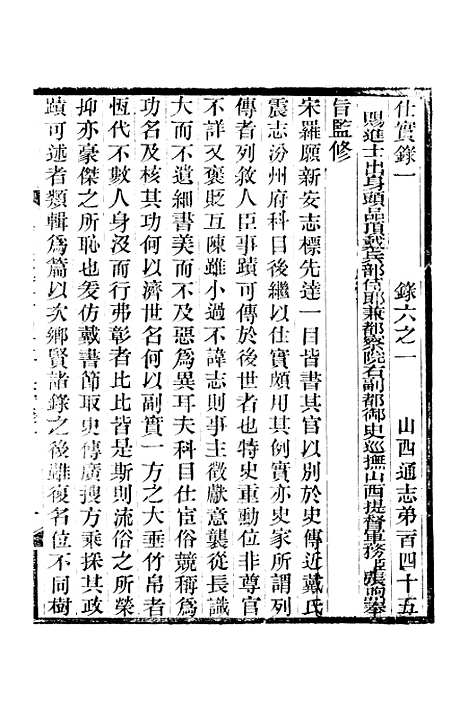 仕實錄一　錄六之一　山西通志弟百四十五
賜進士出身頭品頂戴兵部侍郎兼都察院右副都御史巡撫山西提督軍務臣張煦奉
旨監修
宋羅願新安志標先達一目皆書其官以別於史傳近戴氏
震志汾州府科目後繼以仕實頗用其例實亦史家所謂列
傳者列敘人臣事蹟可傳於後世者也特史重動位非尊官
不詳又褒貶互陳雖小過不諱志則事主徵獻意襲從長識
大而不遺細書美而不及惡爲異耳夫科目仕宦俗競稱爲
功名及核其功何以濟世名何以副實一方之大垂竹帛者
恆代不數人身沒而行弗彰者比比皆是斯則流俗之所榮
抑亦豪傑之所恥也爰仿戴書節取史傳廣搜方乘採其政
蹟可述者類輯爲篇以次鄉賢諸錄之後雖復名位不同樹